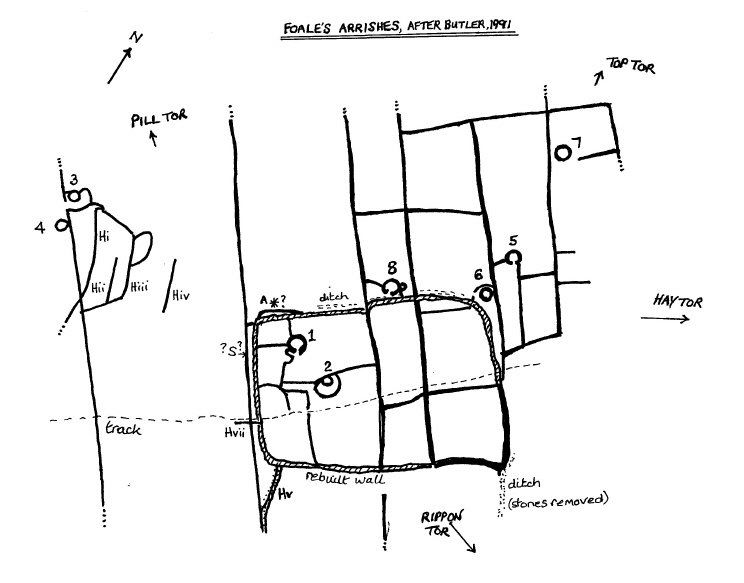 FOALE'S ARRISHES, AFTER BUTLER, 1991
N
TOP TOR
PILL TOR
7
3
4
Hi
5
8
6
Hii
Hiii
Hiv
A *?
ditch
HAYTOR
1
?S?
2
track
Hvii
rebuilt wall
Hv
ditch
(stones removed)
RIPPON
TOR